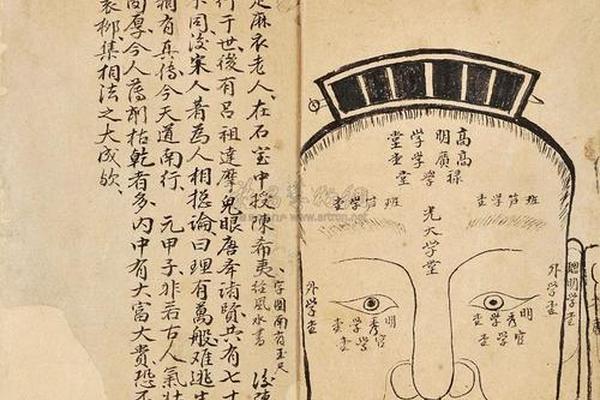 高廣學堂
高明學堂
祿學堂
班笋學堂
班笋學堂
光大學堂
聰明學堂
外學堂
明秀學堂
官學堂
明秀學堂
官學堂
外學堂
是麻衣老人、在石室中授陳希夷、字圖南有玉尺經風水書 後陳
行于世後有呂祖達摩鬼眼唐舉諸賢共有七十
不同後宋人着為人相總論曰理有萬般难逃生
稍有真傳今天道南行 元甲子非若古人氣壯
固厚今人薄削枯乾者多內中有大富大貴恐不
袁柳集相法之大成欤
www.artron.net